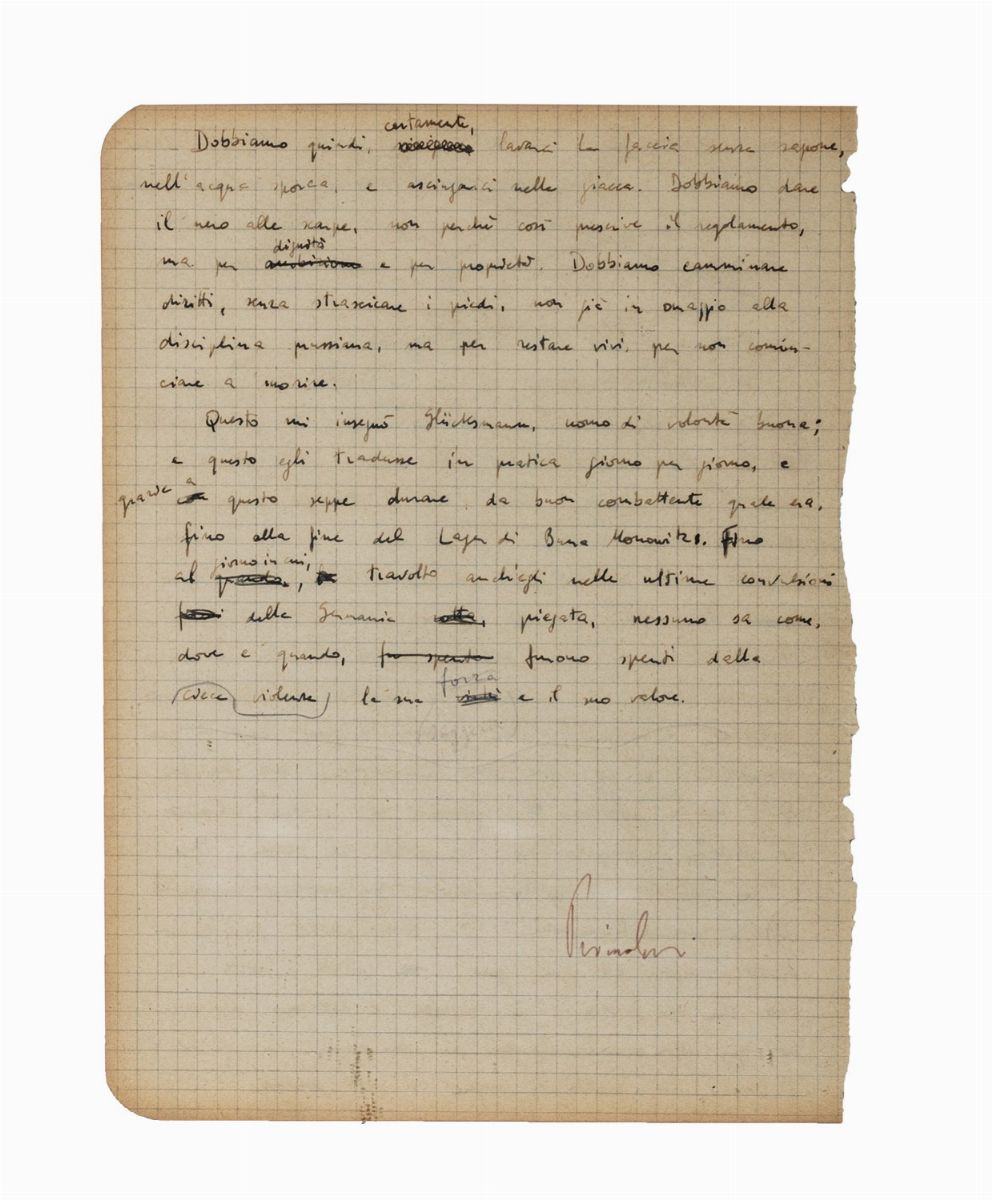 certamente,
Dobbiamo quindi, lavarci la faccia senza sapone,
nell'acqua sporca, e asciugarci nella giacca. Dobbiamo dare
il nero alle scarpe, non perché così prescrive il regolamento,
dignità
ma per ambizione e per proprietà. Dobbiamo camminare
diritti, senza strascicare i piedi, non già in omaggio alla
disciplina prussiana, ma per restare vivi, per non comin-
ciare a morire.
Questo mi insegnò Glücksmann, uomo di volontà buona;
e questo egli tradusse in pratica giorno per giorno, e
grazie a questo seppe durare, da buon combattente quale era,
fino alla fine del Lager di Buna Monowitz. Fino
giorno in cui,
al quando, travolto anch'egli nelle ultime convulsioni
della Germania piegata, nessuno sa come,
dove e quando, fu spento furono spenti dalla
forza
cieca violenza la sua e il suo valore.
Primo Levi